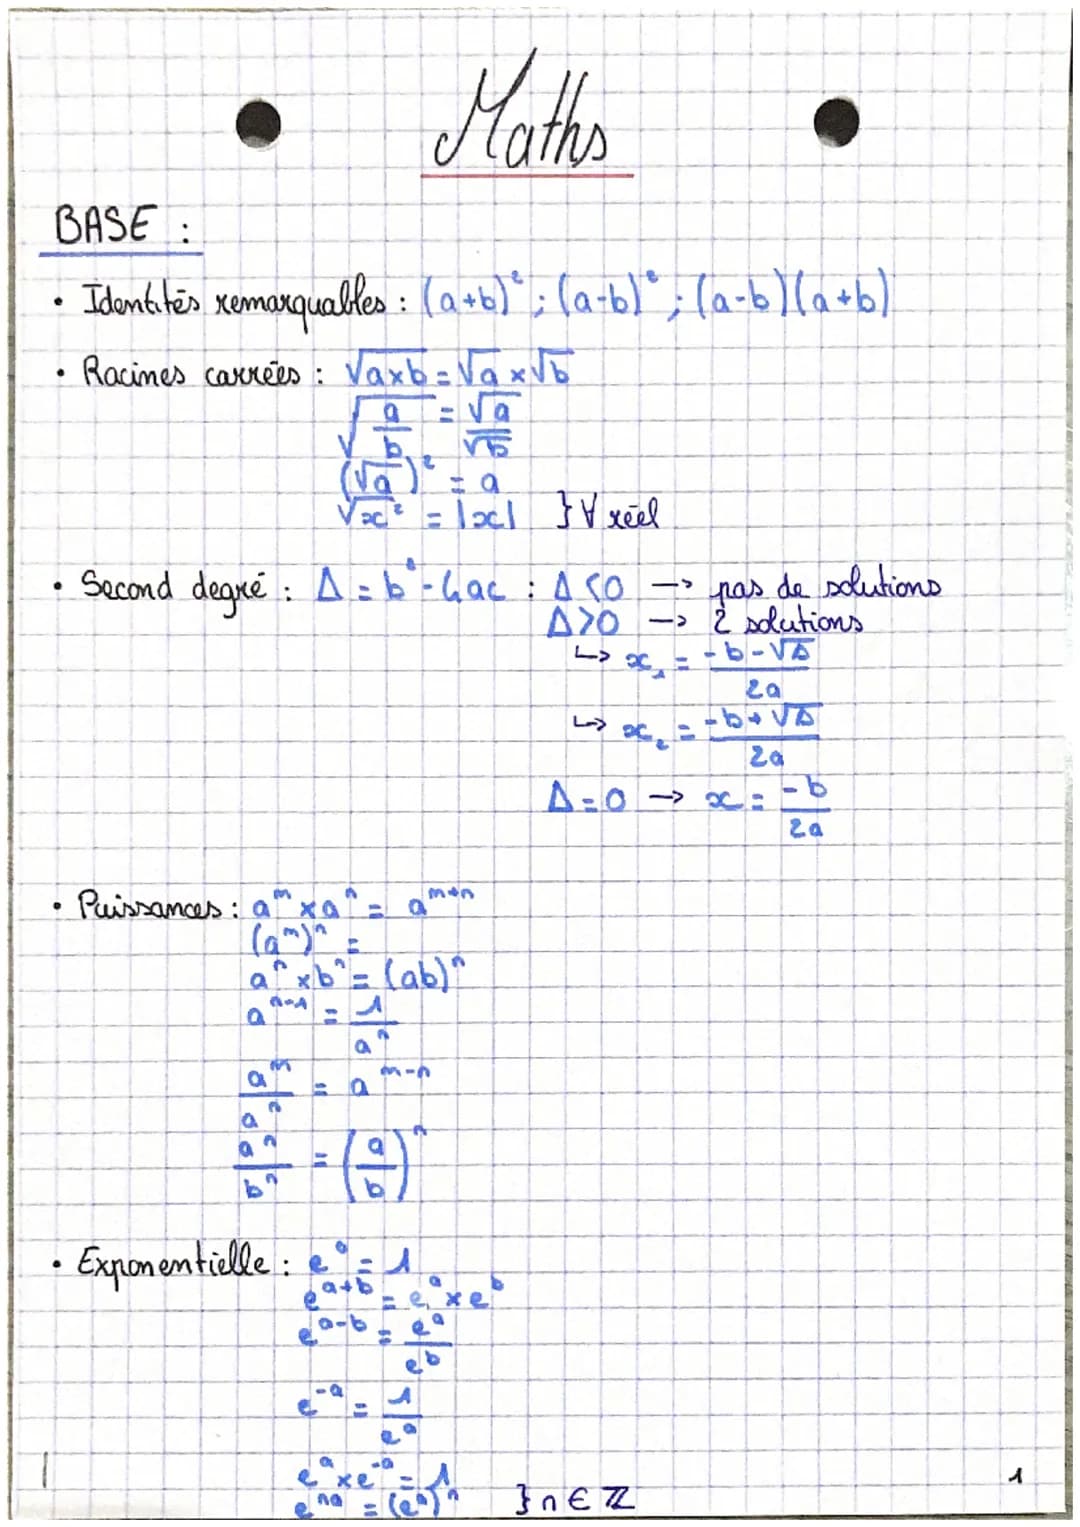 Maths
BASE :
• Identités remarquables : (a+b)² ; (a-b)² ; (a-b)(a+b)
• Racines carrées : √(a×b) = √a × √b
√(a/b) = √a/√b
(√a)² = a
√x² = |x| } ∀ réel
• Second degré : Δ = b² - 4ac : Δ < 0 → pas de solutions
Δ > 0 → 2 solutions
↳ x₁ = (-b-√Δ)/2a
↳ x₂ = (-b+√Δ)/2a
Δ = 0 → x = -b/2a
• Puissances : aᵐ × aⁿ = aᵐ⁺ⁿ
(aᵐ)ⁿ =
aⁿ × bⁿ = (ab)ⁿ
aⁿ⁻¹ = 1/aⁿ
aᵐ/aⁿ = aᵐ⁻ⁿ
aⁿ/bⁿ = (a/b)ⁿ
• Exponentielle : e⁰ = 1
eᵃ⁺ᵇ = eᵃ × eᵇ
eᵃ⁻ᵇ = eᵃ/eᵇ
e⁻ᵃ = 1/eᵃ
eᵃ × e⁻ᵃ = 1
eⁿᵃ = (eᵃ)ⁿ } n ∈ ℤ
1